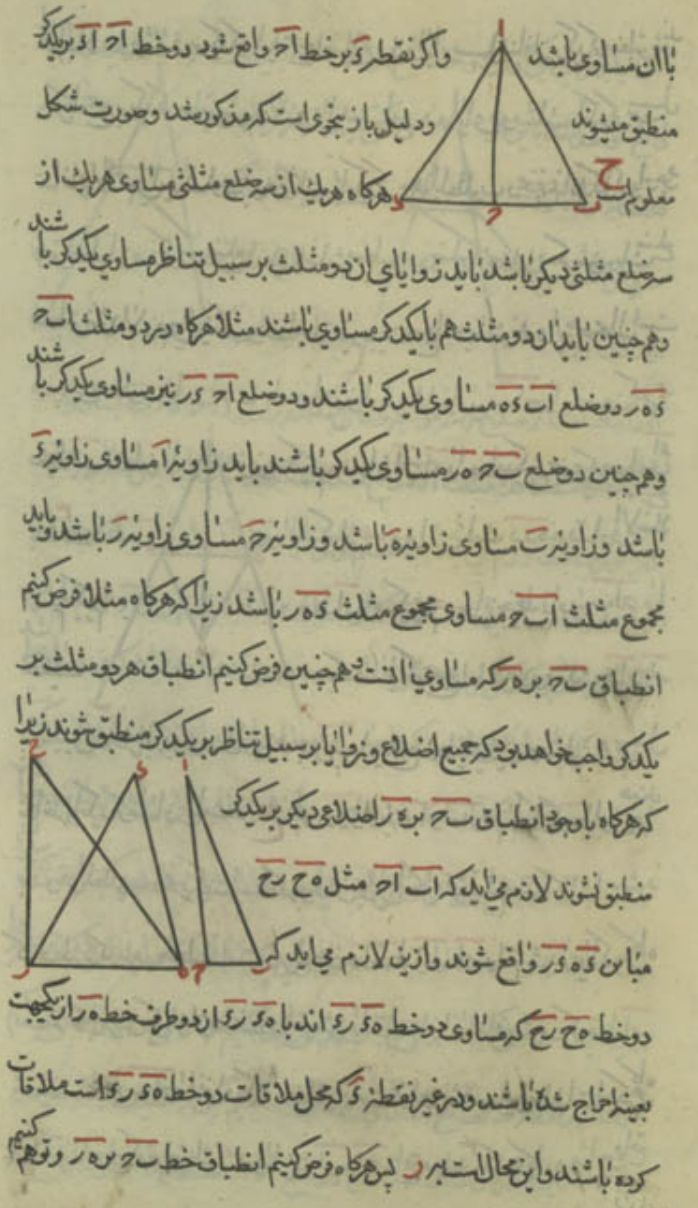 باان مساوی باشد واکر نقطهٔ ءَ بر خط اح واقع شود دو خط اح اء بر یکدکر
منطبق میشوند ودلیل باز بنحوی است که مذکور شد وصورت شکل
معلوم است ح هرکاه هریك از سه ضلع مثلثی مساوی هریك از
سه ضلع مثلثی دیکر باشد باید زوایای ان دو مثلث بر سبیل تناظر مساوی یکدکر باشند
وهم چنین باید ان دو مثلث هم با یکدکر مساوی باشند مثلا هرکاه در دو مثلث اب ح
ء ه ر دو ضلع اب ء ه مساوی یکدکر باشند ودو ضلع اح ء ر نیز مساوی یکدکر باشند
وهم چنین دو ضلع ب ح ه ر مساوی یکدکر باشند باید زاویهٔ اَ مساوی زاویهٔ ءَ
باشد وزاویهٔ ب مساوی زاویهٔ ه باشد وزاویهٔ ح مساوی زاویهٔ ر باشد وباید
مجموع مثلث اب ح مساوی مجموع مثلث ء ه ر باشد زیرا که هرکاه مثلا فرض کنیم
انطباق ب ح بر ه ر که مساوی انست وهم چنین فرض کنیم انطباق هر دو مثلث بر
یکدکر واجب خواهد بود که جمیع اضلاع وزوایا بر سبیل تناظر بر یکدکر منطبق شوند زیرا
که هرکاه با وجود انطباق ب ح بر ه ر اضلاعی دیکر بر یکدکر
منطبق نشوند لازم می اید که اب اح مثل ه ح ر ح
مباین ء ه ء ر واقع شوند وازین لازم می اید که
دو خط ه ح ر ح که مساوی دو خط ه ء ر ء اند با ه ء ر ء از دو طرف خط ه ر از یکجهت
بعینه اخراج شده باشند ودر غیر نقطهٔ ءَ که محل ملاقات دو خط ه ء ر ء است ملاقات
کرده باشند واین محال است پس هرکاه فرض کنیم انطباق خط ب ح بر ه ر وتوهم کنیم